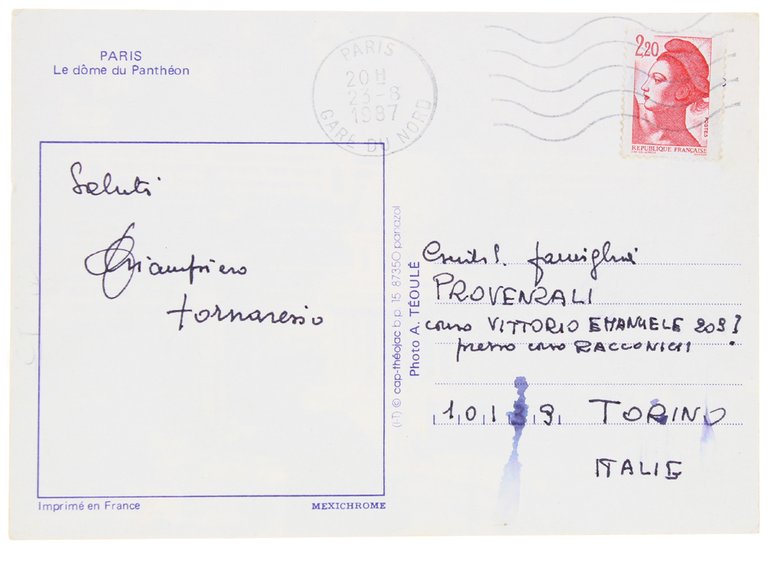 PARIS
Le dôme du Panthéon
PARIS
20H
23-8
1987
GARE DU NORD
2,20
POSTES
REPUBLIQUE FRANÇAISE
Saluti
Giampiero
Fornaresio
(I-T) © cap-théojac b.p. 15 87350 panazol
Photo A. TÉOULÉ
famiglia
PROVENZALI
corso VITTORIO EMANUELE 209
presso corso RACCONIGI
10139 TORINO
ITALIE
Imprimé en France
MEXICHROME